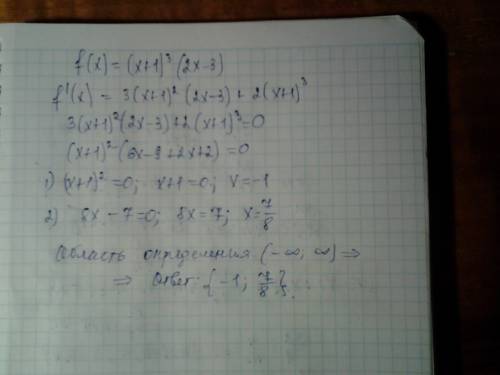 f(x) = (x+1)³ (2x-3)
f'(x) = 3(x+1)² (2x-3) + 2(x+1)³
3(x+1)² (2x-3) + 2(x+1)³ = 0
(x+1)² (6x-9+2x+2) = 0
1) (x+1)² = 0; x+1=0; x=-1
2) 8x - 7=0; 8x=7; x=7/8
Область определения (-∞; ∞) ⇒
⇒ Ответ: {-1; 7/8}.